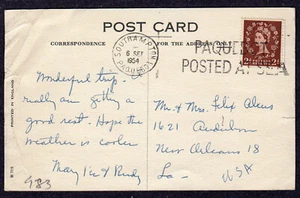 POST CARD
CORRESPONDENCE
FOR THE AD ON
SOUTHAMPTON
6 SEP
1954
PAQUEBOT
PAQUEBOT
POSTED AT SEA
2d 2d
Wonderful trip
really am getting a
good rest. Hope the
weather is cooler
Mary Vic & Rudy
Mr & Mrs Felix
1621 Audubon
New Orleans 18
La-
USA
PRINTED IN ENGLAND
983